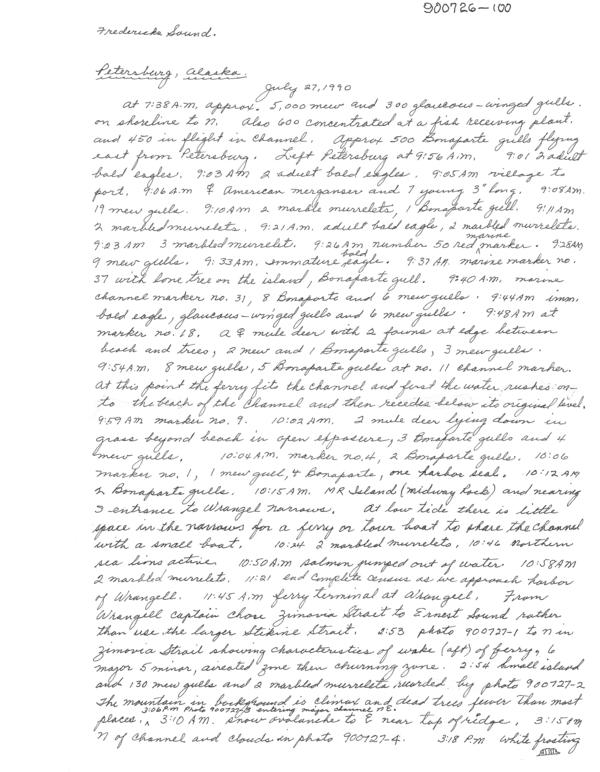 900726-100
Fredericks Sound.
Petersburg, Alaska.
July 27, 1990
At 7:38 A.M. approx. 5,000 mew and 300 glaucous-winged gulls.
on shoreline to N. Also 600 concentrated at a fish receiving plant.
and 450 in flight in channel. Approx 500 Bonaparte gulls flying
east from Petersburg. Left Petersburg at 9:56 A.M. 9:01 2 adult
bald eagles. 9:03 AM 2 adult bald eagles. 9:05 AM village to
port. 9:06 A.M ♀ American merganser and 7 young 3" long. 9:08 AM.
19 mew gulls. 9:10 AM 2 marble murrelets, 1 Bonaparte gull. 9:11 AM
2 marbled murrelets. 9:21 A.M. adult bald eagle, 2 marbled murrelets.
9:23 AM 3 marbled murrelet. 9:26 AM number 50 red marine marker. 9:28 AM
9 mew gulls. 9:33 AM. Immature bald eagle. 9:37 AM. marine marker no.
37 with lone tree on the island, Bonaparte gull. 9:40 A.M. marine
channel marker no. 31, 8 Bonaparte and 6 mew gulls. 9:44 AM imm.
bald eagle, glaucous-winged gulls and 6 mew gulls. 9:48 AM at
marker no. 18. A ♀ mule deer with 2 fawns at edge between
beach and trees, 2 mew and 1 Bonaparte gulls, 3 mew gulls.
9:54 A.M. 8 mew gulls, 5 Bonaparte gulls at no. 11 channel marker.
At this point the ferry fits the channel and first the water rushes on-
to the beach of the Channel and then recedes below its original level.
9:59 AM marker no. 9. 10:02 AM. 2 mule deer lying down in
grass beyond beach in open exposure, 3 Bonaparte gulls and 4
mew gulls. 10:04 A.M. marker no. 4, 2 Bonaparte gulls. 10:06
marker no. 1, 1 mew gull, 4 Bonaparte, one harbor seal. 10:12 AM
2 Bonaparte gulls. 10:15 AM. MR Island (midway Rock) and nearing
S entrance to Wrangel narrows. At low tide there is little
space in the narrows for a ferry or tour boat to share the channel
with a small boat. 10:24 2 marbled murrelets, 10:46 northern
sea lions active. 10:50 AM salmon jumped out of water. 10:58 AM
2 marbled murrelets. 11:21 end complete census as we approach harbor
of Wrangell. 11:45 A.M ferry terminal at Wrangell. From
Wrangell captain chose Zimovia Strait to Ernest Sound rather
than use the larger Stikine Strait. 2:53 photo 900727-1 to N in
Zimovia Strait showing characteristics of wake (aft) of ferry, 6
major 5 minor, aireated zone then churning zone. 2:54 Small island
and 130 mew gulls and 2 marbled murrelets, recorded by photo 900727-2
The mountain in background is climax and dead trees fewer than most
places. 3:06 P.M Photo 900727-3 entering major channel NE. 3:10 AM. Snow avalanche to E near top of ridge, 3:15 PM
N of channel and clouds in photo 900727-4. 3:18 P.M. white frosting